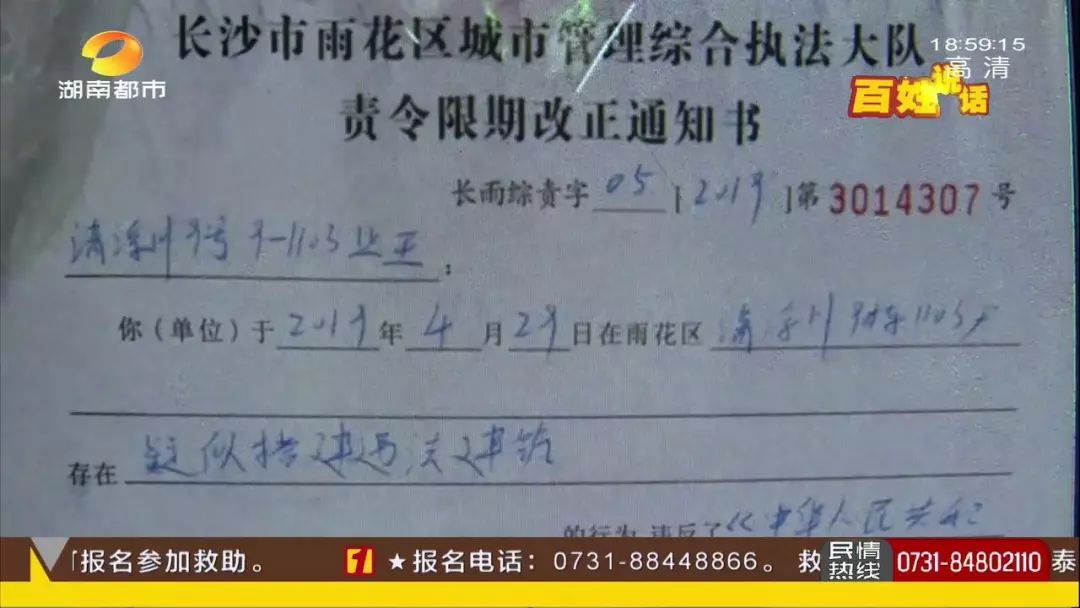 长沙市雨花区城市管理综合执法大队
18:59:15
高清
湖南都市
百姓说话
责令限期改正通知书
长雨综责字 05 [2019]第3014307号
9-1103业主:
你(单位)于2019年4月29日在雨花区
存在疑似搭建违法建筑
的行为,违反了《中华人民共和
报名参加救助。 ★报名电话:0731-88448866。 救
民情热线 0731-84802110 泰